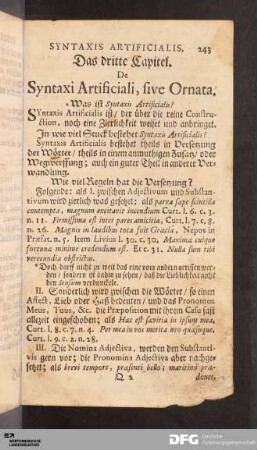 SYNTAXIS ARTIFICIALIS. 243
Das dritte Capitel.
De
Syntaxi Artificiali, sive Ornata.
Was ist Syntaxis Artificialis?
Syntaxis Artificialis ist / der über die reine Constru-
ction, noch eine Zierlichkeit weiset und anbringet.
In wie viel Stück bestehet Syntaxis Artificialis?
Syntaxis Artificialis bestehet theils in Versetzung
der Wörter / theils in einem anmuthigen Zusatz / oder
Wegwerffung; auch ein guter Theil in anderer Ver-
wandlung.
Wie viel Regeln hat die Versetzung?
Folgende: als I. zwischen Adjectivum und Substan-
tivum wird zierlich was gesetzt: als parva sæpe scintilla
contempta, magnum excitavit incendium Curt. l. 6. c. 3.
n. 11. Firmissima est inter pares amicitia, Curt. l. 7. c. 8.
n. 26. Magnis in laudibus tota fuit Græcia, Nepos in
Præfat. n. 5. Item Livius l. 30. c. 30. Maxima cuique
fortuna minime credendum est. Et c. 31. Nulla sum tibi
verecundia obstrictus.
* Doch darff nicht zu weit das eine vom andern versetzet wer-
den / sondern ist dahin zu sehen / daß die Lieblichkeit nicht
den Sensum verdunckele.
II. Sonderlich wird zwischen die Wörter / so einen
Affect, Lieb oder Haß bedeuten / und das Pronomen
Meus, Tuus, &c. die Præposition mit ihrem Casu fast
allezeit eingeschoben; als Hac est sævitia in ipsum mea,
Curt. l. 8. c. 7. n. 4. Per mea in vos merita neo quæsoque,
Curt. l. 9. c. 2. n. 28.
III. Die Nomina Adjectiva, werden den Substanti-
vis gern vor; die Pronomina Adjectiva aber nachge-
setzet; als brevi tempore, præsenti bello; maritimi præ-
Q 2 dones,
WÜRTTEMBERGISCHE
LANDESBIBLIOTHEK
DFG Deutsche
Forschungsgemeinschaft